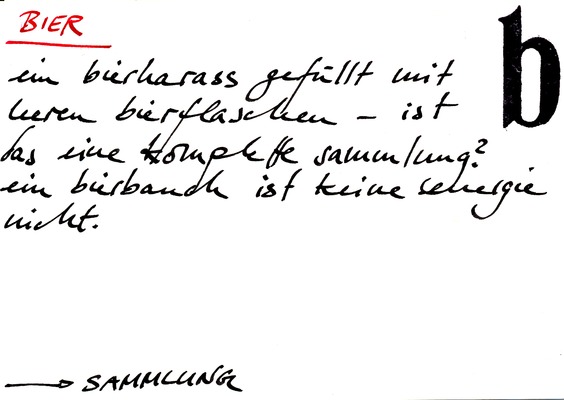 BIER
b
ein bierharass gefüllt mit
leeren bierflaschen – ist
das eine komplette sammlung?
ein bierbauch ist keine
nicht.
→ SAMMLUNG